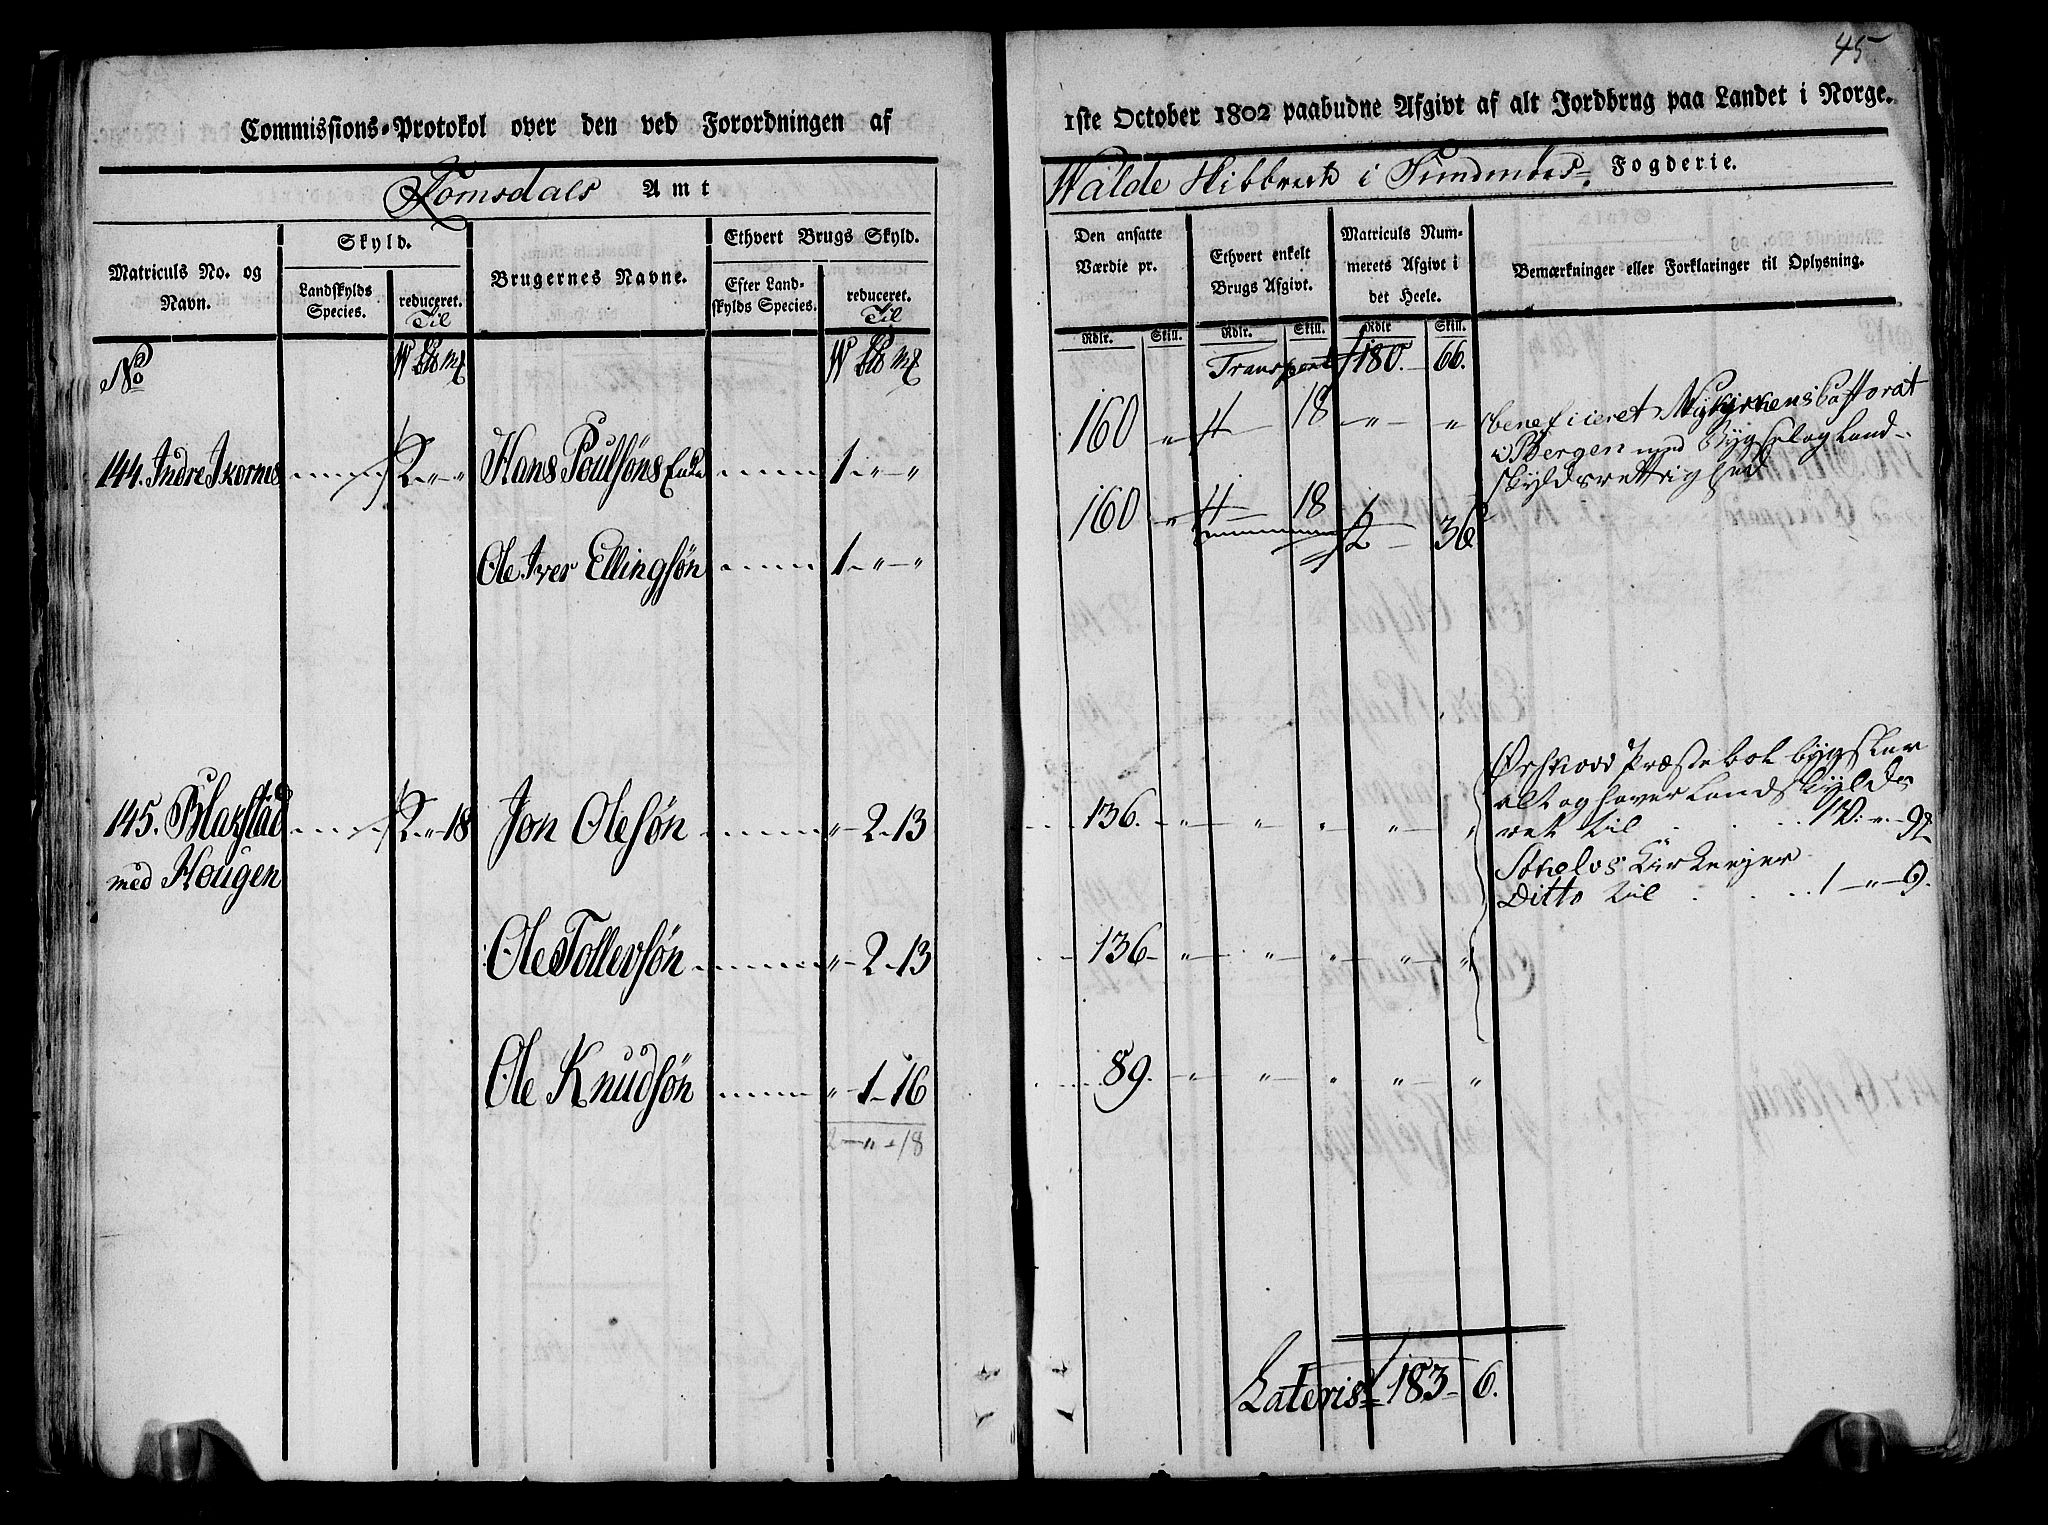 45
Commissions-Protokol over den ved Forordningen af 1ste October 1802 paabudne Afgivt af alt Jordbrug paa Landet i Norge.
Romsdals Amt
Walde Skibbrede i Sundmøers Fogderie.
Matriculs No. og Navn.
Skyld.
Landskylds Species.
reduceret. Til
Brugernes Navne.
Ethvert Brugs Skyld.
Efter Landskylds Species.
reduceret. Til
Den ansatte Værdie pr.
Ethvert enkelt Brugs Afgivt.
Matriculs Nummerets Afgivt i det Heele.
Bemærkninger eller Forklaringer til Oplysning.
Rdlr. Skill. Rdlr. Skill. Rdlr Skill.
No W Pd mk W Pd mk Transport 180. 66.
144. Indre Ikornes 2 " " Hans Poulsøns Enke 1 " " 160 " 4 18 " " beneficeret Nykirkens Pastorat
i Bergen med Bygsel og Land-
skyldsrettighed
Ole Iver Ellingsøn 1 " " 160 " 4 18 2 36
145. Blakstad 2 " 18 Jon Olesøn " 2 13 136. " " " " "
med Hougen
Ørskovs Præstebol bygsler
alt og haver Landskylds
ret til 1W. " 9
Stheløs Kirke eyer
Ditto til 1 " 9.
Ole Tollevsøn " 2 13 136 " " " " "
Ole Knudsøn " 1 16 89. " " " " "
2 " 18
Lateris 183 6.